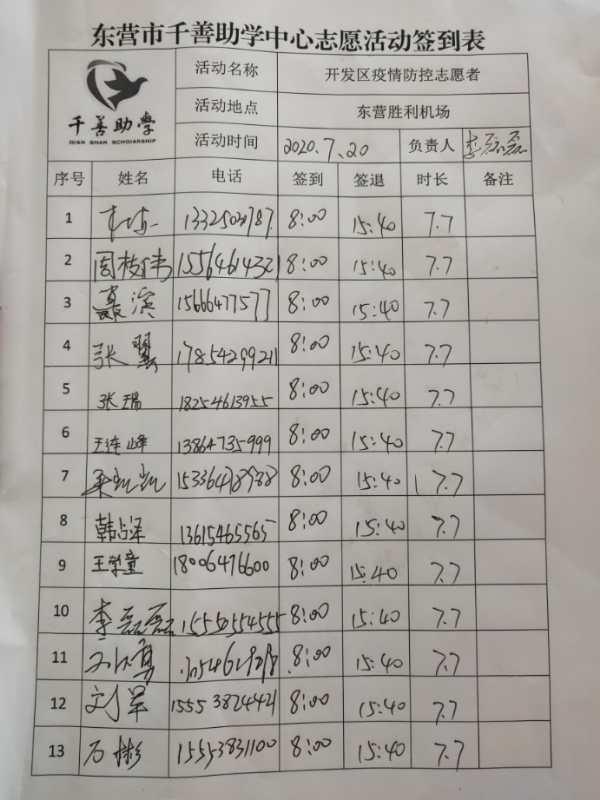 东营市千善助学中心志愿活动签到表
千善助学
QIAN SHAN SCHOLARSHIP
活动名称 开发区疫情防控志愿者
活动地点 东营胜利机场
活动时间 2020.7.20 负责人 李磊磊
序号 姓名 电话 签到 签退 时长 备注
1 8:00 15:40 7.7
2 周枝伟 15564614321 8:00 15:40 7.7
3 聂滨 15666477577 8:00 15:40 7.7
4 张翼 17854299211 8:00 15:40 7.7
5 张瑞 18254613955 8:00 15:40 7.7
6 王连峰 13864735999 8:00 15:40 7.7
7 8:00 15:40 7.7
8 13615465565 8:00 15:40 7.7
9 王学童 18006476600 8:00 15:40 7.7
10 李磊磊 15550554555 8:00 15:40 7.7
11 8:00 15:40 7.7
12 刘军 15553824421 8:00 15:40 7.7
13 石彬 15553831100 8:00 15:40 7.7